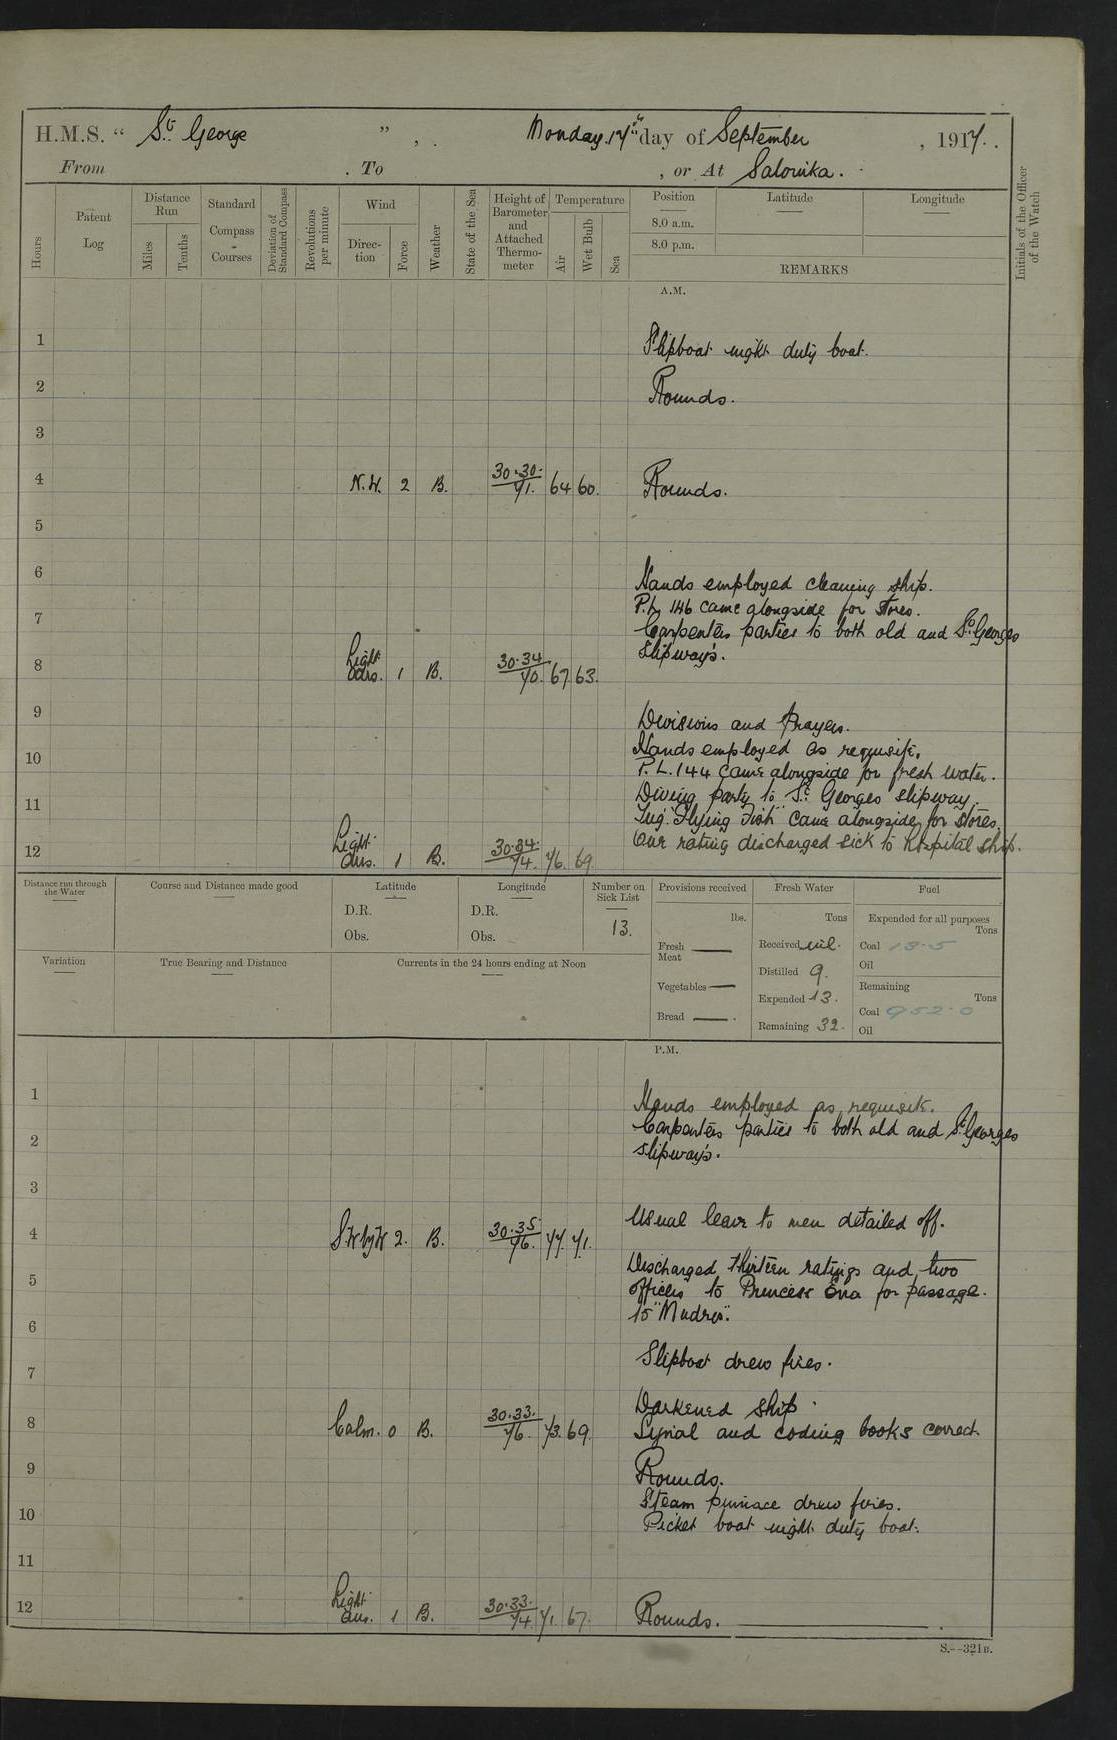 H.M.S. “ St. George ” , . Monday. 17th day of September , 1917 .
From . To , or At Salonika .
Hours
Patent Log
Distance Run
Miles
Tenths
Standard Compass - Courses
Deviation of Standard Compass
Revolutions per minute
Wind
Direc-tion
Force
Weather
State of the Sea
Height of Barometer and Attached Thermo-meter
Temperature
Air
Wet Bulb
Sea
Position
Latitude
Longitude
8.0 a.m.
8.0 p.m.
REMARKS
Initials of the Officer of the Watch
A.M.
1 Slipboat night duty boat.
2 Rounds.
3
4 N.W. 2 B. 30.30. 71. 64 60. Rounds.
5
6 Hands employed cleaning ship.
P.L 146 came alongside for stores.
7 Carpenters parties to both old and St. Georges
slipways.
8 Light airs. 1 B. 30.34 70. 67 63.
9 Divisions and Prayers.
Hands employed as requisite.
10 P.L. 144 came alongside for fresh water.
Diving party to St. Georges slipway.
11 Tug "Flying Fish" came alongside for stores.
12 Light airs. 1 B. 30.34. 74. 76. 69. One rating discharged sick to hospital ship.
Distance run through the Water
Course and Distance made good
Latitude
D.R.
Obs.
Longitude
D.R.
Obs.
Number on Sick List
13.
Provisions received
lbs.
Fresh Meat —
Vegetables —
Bread — .
Fresh Water
Tons
Received nil.
Distilled 9.
Expended 13.
Remaining 32.
Fuel
Expended for all purposes
Tons
Coal 13.5
Oil
Remaining
Tons
Coal 952.0
Oil
Variation
True Bearing and Distance
Currents in the 24 hours ending at Noon
P.M.
1 Hands employed as requisite.
2 Carpenters parties to both old and St. Georges
slipways.
3
4 SW by W 2. B. 30.35 76. 77. 71. Usual leave to men detailed off.
5 Discharged thirteen ratings and two
officers to Princess Ena for passage
6 to "Mudros".
7 Slipboat drew fires.
8 Calm. 0 B. 30.33. 76. 73. 69. Darkened ship.
Signal and coding books correct.
9 Rounds.
Steam pinnace drew fires.
10 Picket boat night duty boat.
11
12 Light airs. 1 B. 30.33. 74. 71. 67. Rounds.
S.—321B.